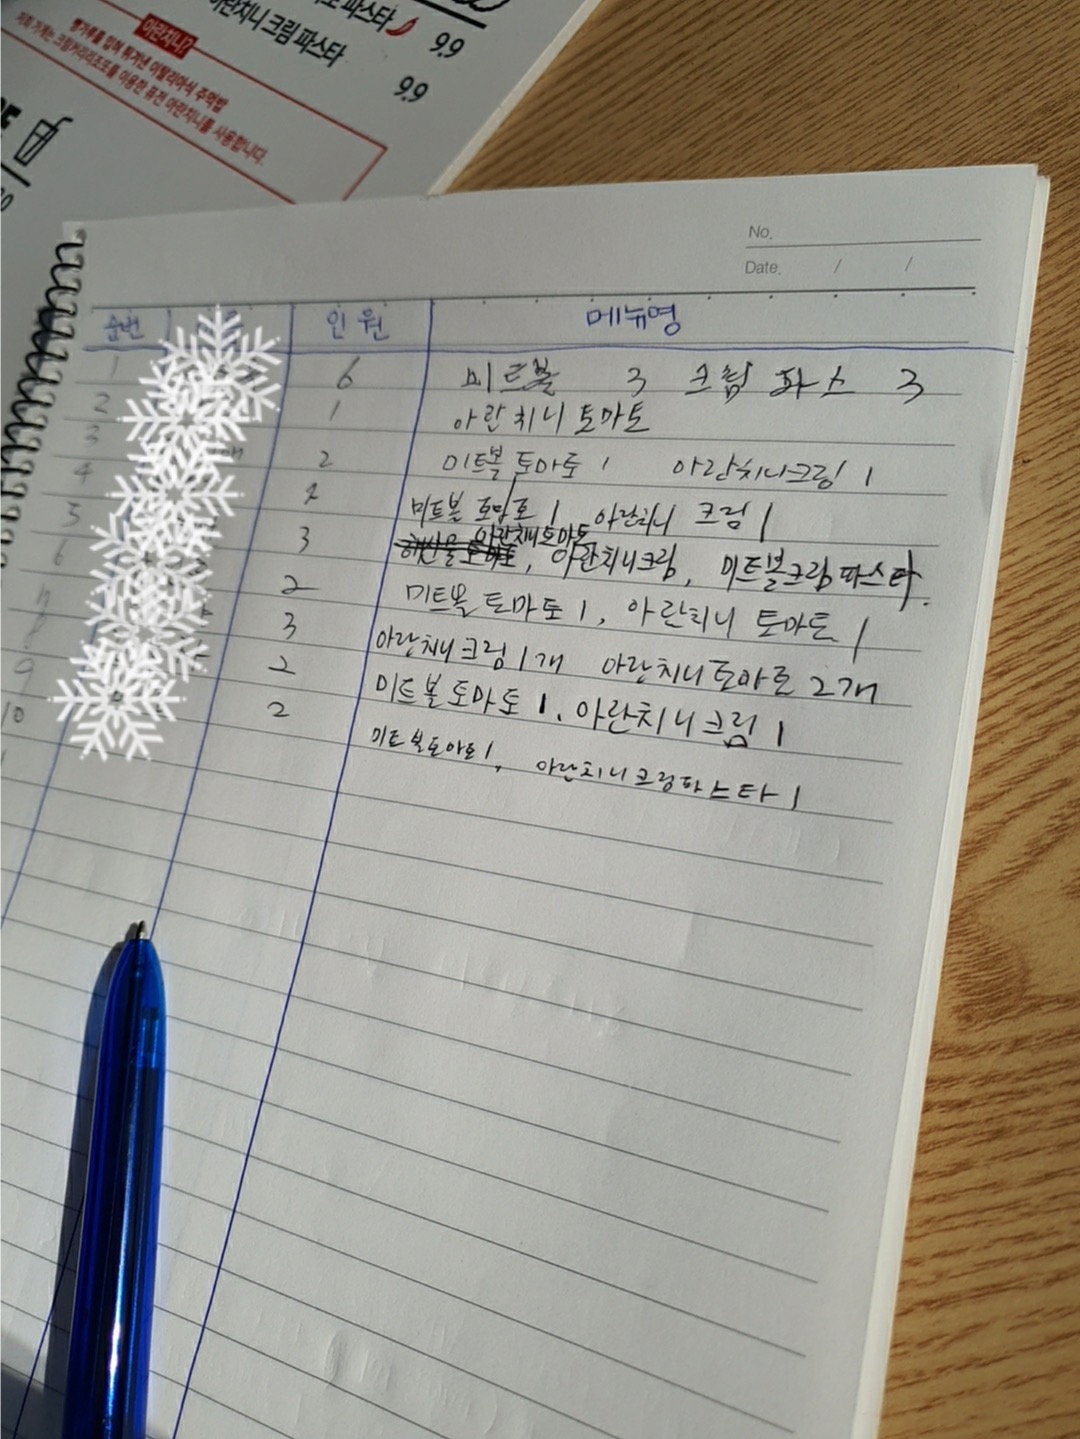 파스타 9.9
아란치니 크림 파스타 9.9
아란치니?
빵가루를 입혀 튀겨낸 이탈리아식 주먹밥
저희 가게는 크림커리리조또를 이용한 퓨전 아란치니를 사용합니다.
No.
Date. / /
순번 인원 메뉴명
1 6 미트볼 3 크림 파스 3
2 1 아란치니 토마토
3 2 미트볼 토마토 1 아란치니크림 1
4 미트볼 토마토 1 아란치니 크림 1
아란치니토마토
5 3 , 아란치니크림, 미트볼크림파스타.
6 2 미트볼 토마토 1, 아란치니 토마토 1
7 3 아란치니크림 1개 아란치니토마토 2개
8 2 미트볼토마토 1. 아란치니크림 1
9 2 미트볼토마토1, 아란치니크림파스타 1
10